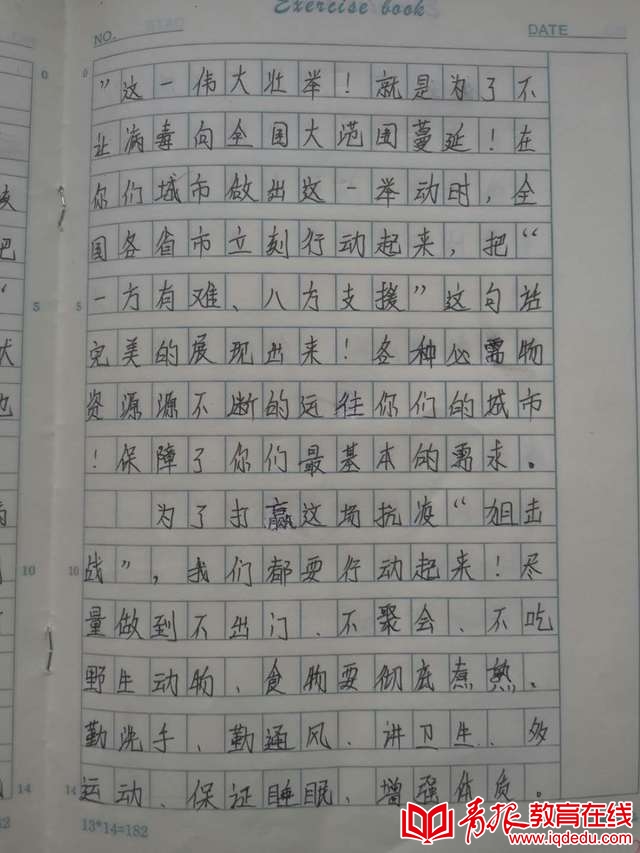 Exercise book
NO.
DATE
”这一伟大壮举！就是为了不
让病毒向全国大范围蔓延！在
你们城市做出这一举动时，全
国各省市立刻行动起来，把“
一方有难、八方支援”这句话
完美的展现出来！各种必需物
资源源不断的运往你们的城市
！保障了你们最基本的需求。
为了打赢这场抗疫“狙击
战”，我们都要行动起来！尽
量做到不出门、不聚会、不吃
野生动物、食物要彻底煮熟、
勤洗手、勤通风、讲卫生、多
运动、保证睡眠、增强体质。
0
5
10
14
0
5
10
14
13*14=182
青报教育在线
www.iqdedu.com